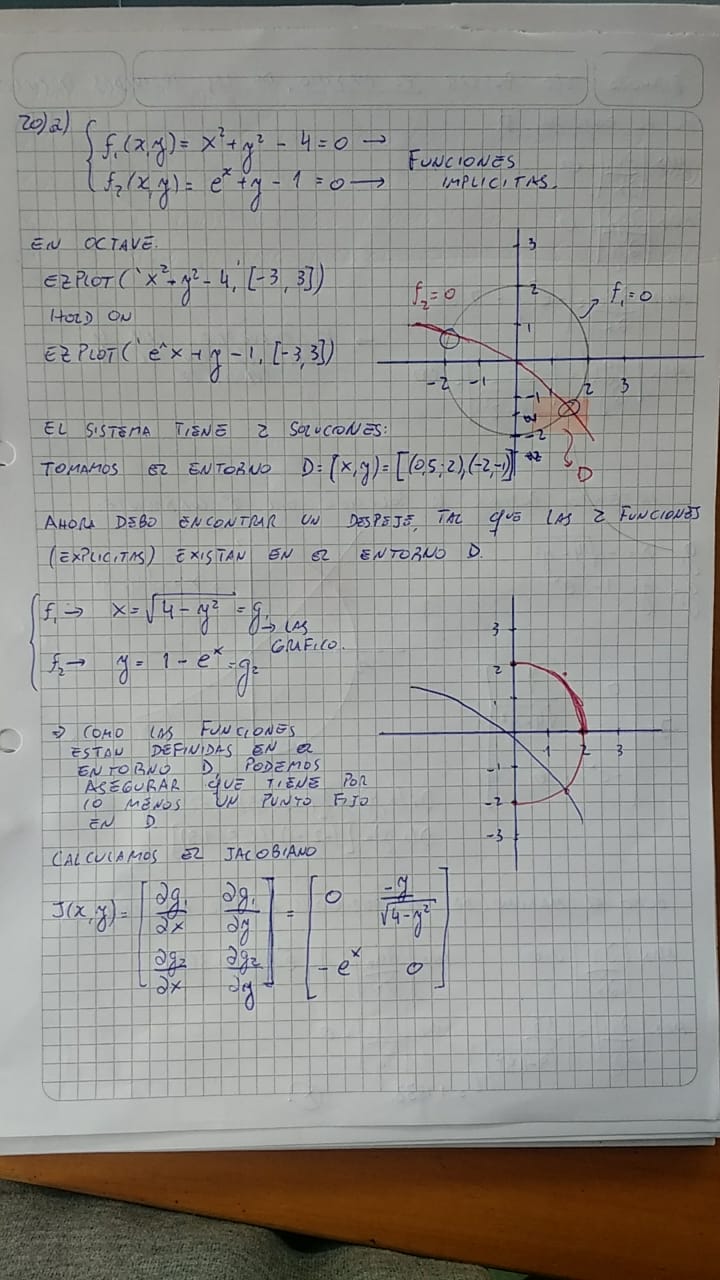 20)a) { f₁(x,y) = x² + y² - 4 = 0 →
f₂(x,y) = eˣ + y - 1 = 0 → FUNCIONES IMPLICITAS.
EN OCTAVE.
EZPLOT('x²+y²-4,' [-3, 3])
HOLD ON
EZPLOT('e^x + y - 1, [-3,3])
3
2
1
-2 -1 2 3
-1
-2
f₂=0
f₁=0
D
EL SISTEMA TIENE 2 SOLUCIONES:
TOMAMOS EL ENTORNO D = [x,y) = [(0,5;2),(-2,-1)]
AHORA DEBO ENCONTRAR UN DESPEJE, TAL QUE LAS 2 FUNCIONES
(EXPLICITAS) EXISTAN EN EL ENTORNO D.
{ f₁ → x = √(4 - y²) = g₁ → LAS GRAFICO.
f₂ → y = 1 - eˣ = g₂
3
2
1 2 3
-1
-2
-3
⇒ COMO LAS FUNCIONES
ESTAN DEFINIDAS EN EL
ENTORNO D, PODEMOS
ASEGURAR QUE TIENE POR
LO MENOS UN PUNTO FIJO
EN D.
CALCULAMOS EL JACOBIANO
J(x,y) = [ ∂g₁/∂x ∂g₁/∂y ; ∂g₂/∂x ∂g₂/∂y ] = [ 0 -y/√(4-y²) ; -eˣ 0 ]